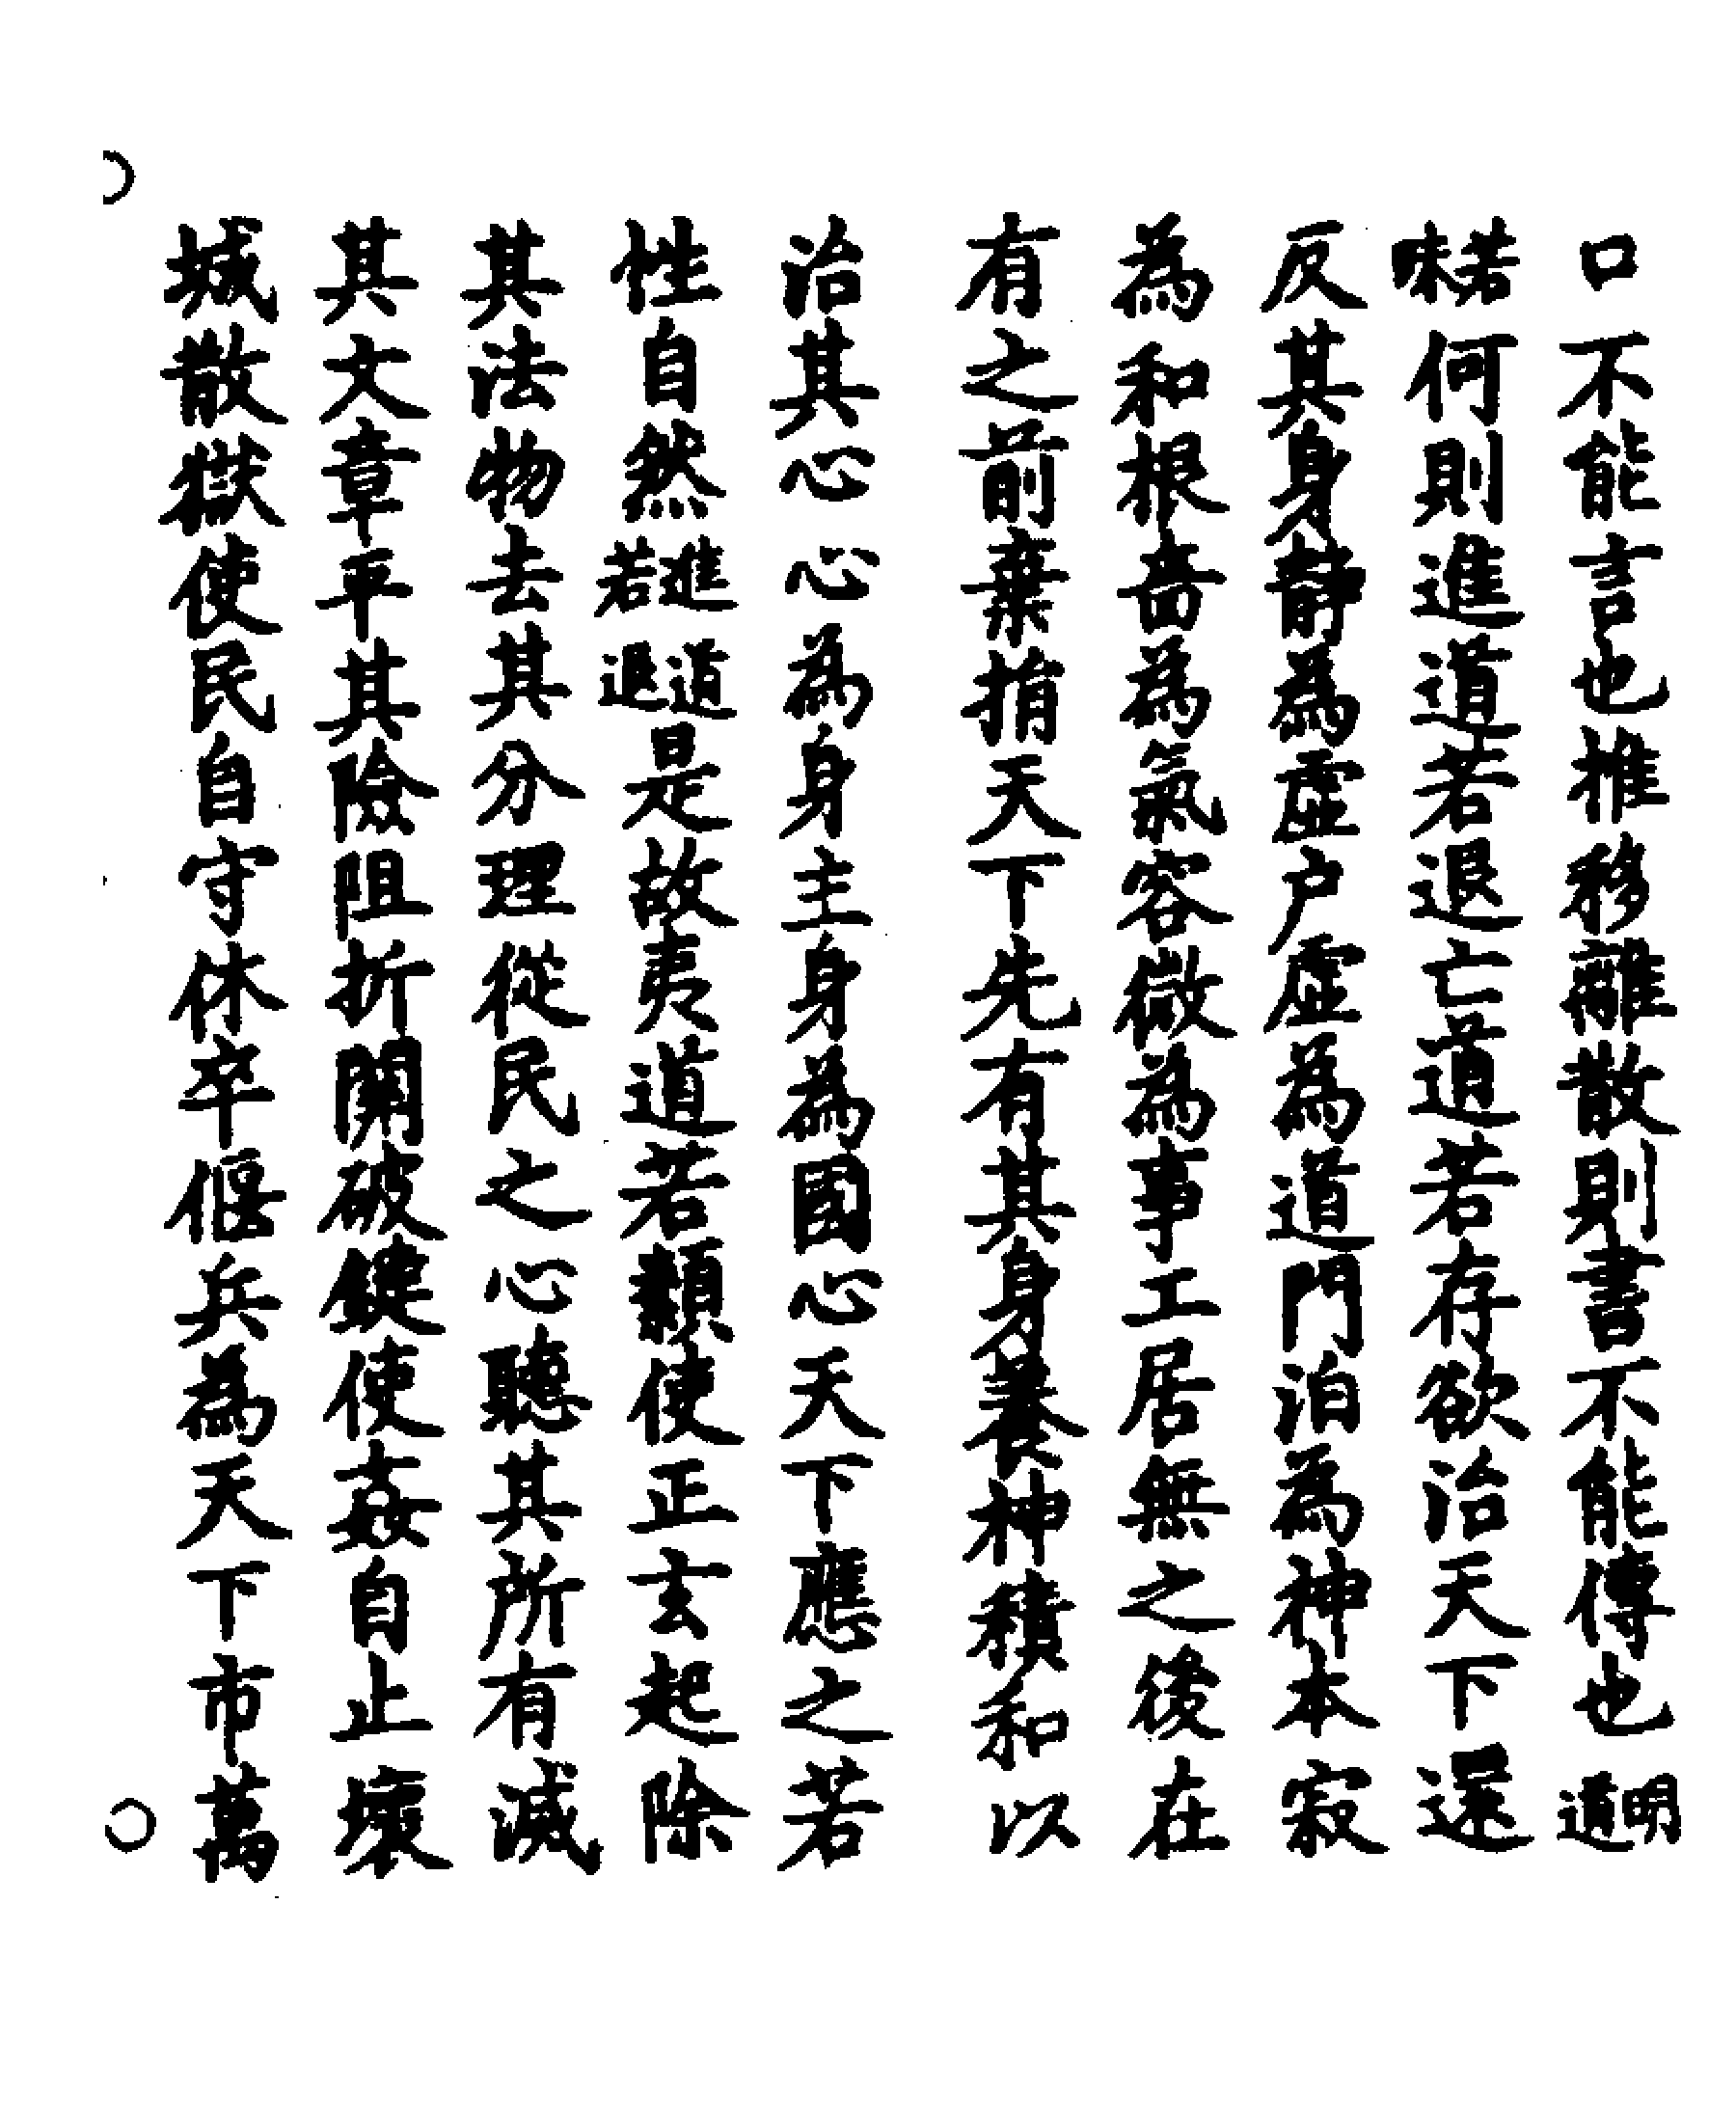 口不能言也推移離散則書不能傳也明道
若昧何則進道若退亡道若存欲治天下還
反其身静為虛户虛為道門泊為神本寂
為和根嗇為氣容微為事工居無之後在
有之前棄捐天下先有其身養神積和以
治其心心為身主身為國心天下應之若
性自然進道若退是故夷道若纇使正玄起除
其法物去其分理從民之心聽其所有滅
其文章平其險阻折關破鍵使姦自止壞
城散獄使民自守休卒偃兵為天下市萬